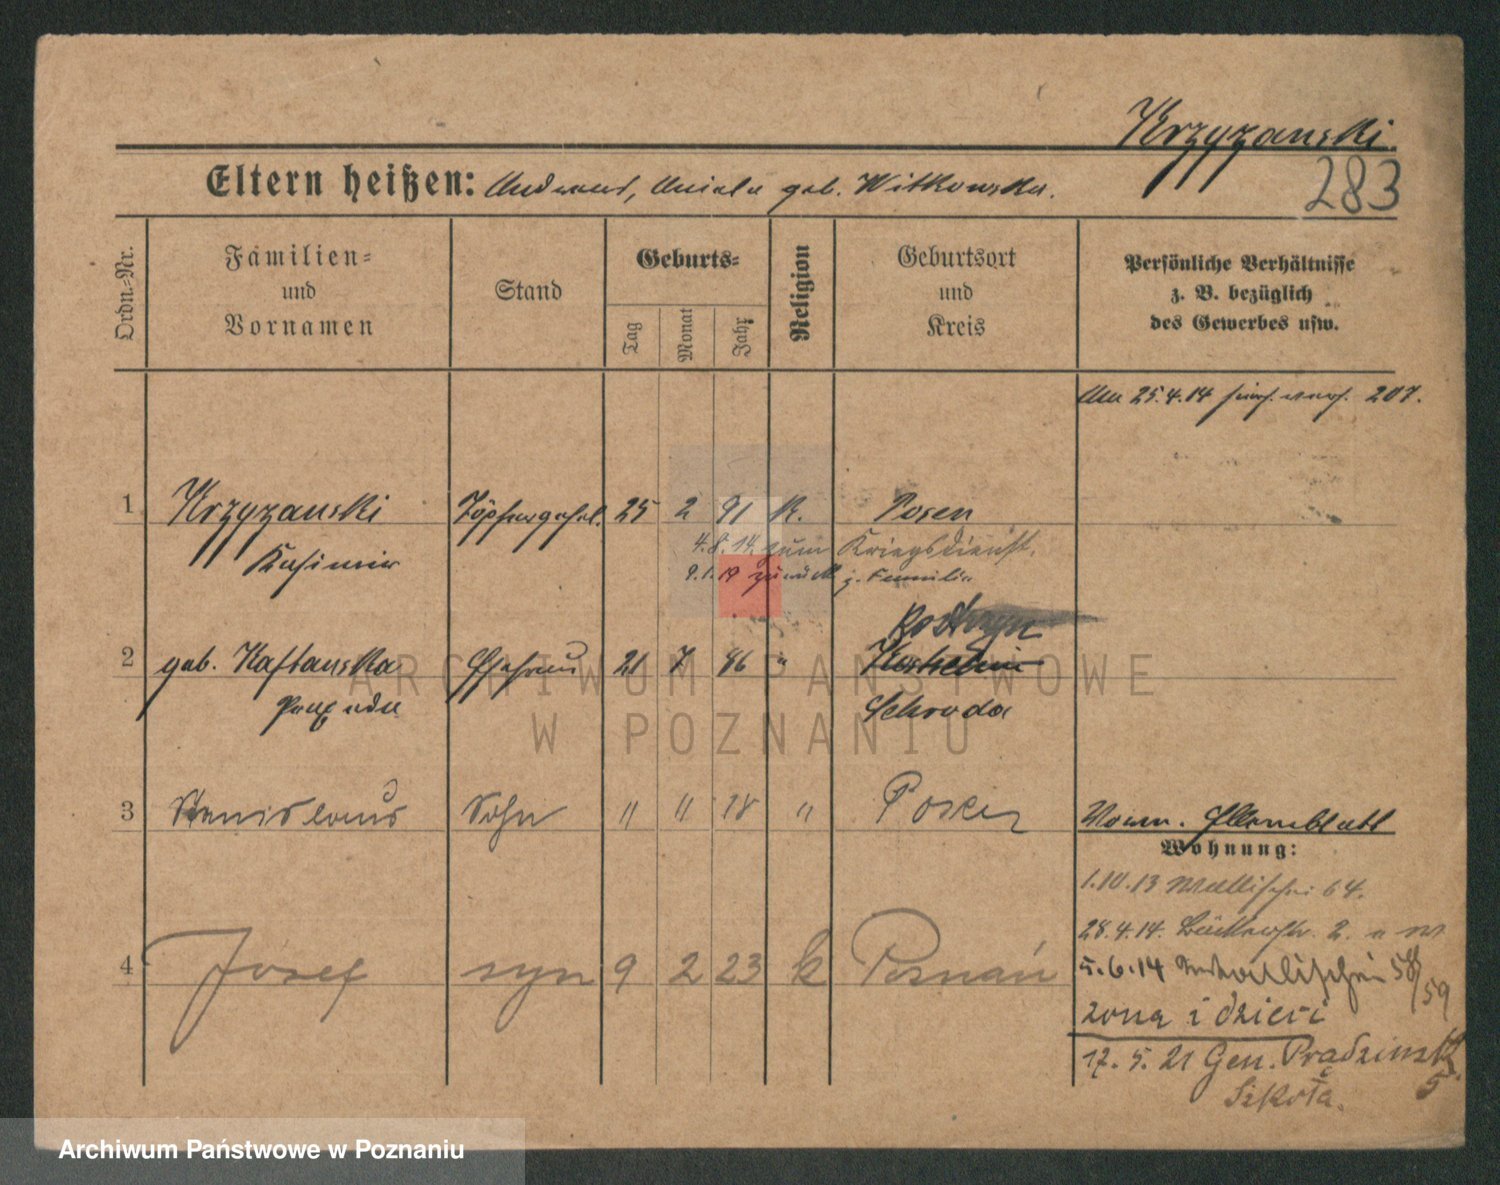 Krzyzanski.
283
Eltern heißen: Andreas, Aniela geb. Witkowska.
Ordn.-Nr.
Familien-
und
Vornamen
Stand
Geburts-
Tag
Monat
Jahr
Religion
Geburtsort
und
Kreis
Persönliche Verhältnisse
z. B. bezüglich
des Gewerbes usw.
25.4.14 207.
1 Krzyzanski Töpfergesel. 25 2 91 K. Posen
Kasimir
4.8.14 zum Kriegsdienst.
9.1.19 zurück z. Familie
Kostrzyn
2 geb. Kaftanska Ehefrau 21 7 86 "
Praxeda Schroda
3 Stanislaus Sohn " " 18 " Posen
Elternblatt
Wohnung:
1.10.13 Wallischei 64.
28.4.14. 2.
4 Josef syn 9 2 23 k Poznań
5.6.14 58/59
żona i dzieci
17.5.21 Gen. Prądzińsk
5
Szkoła.
ARCHIWUM PAŃSTWOWE
W POZNANIU
Archiwum Państwowe w Poznaniu